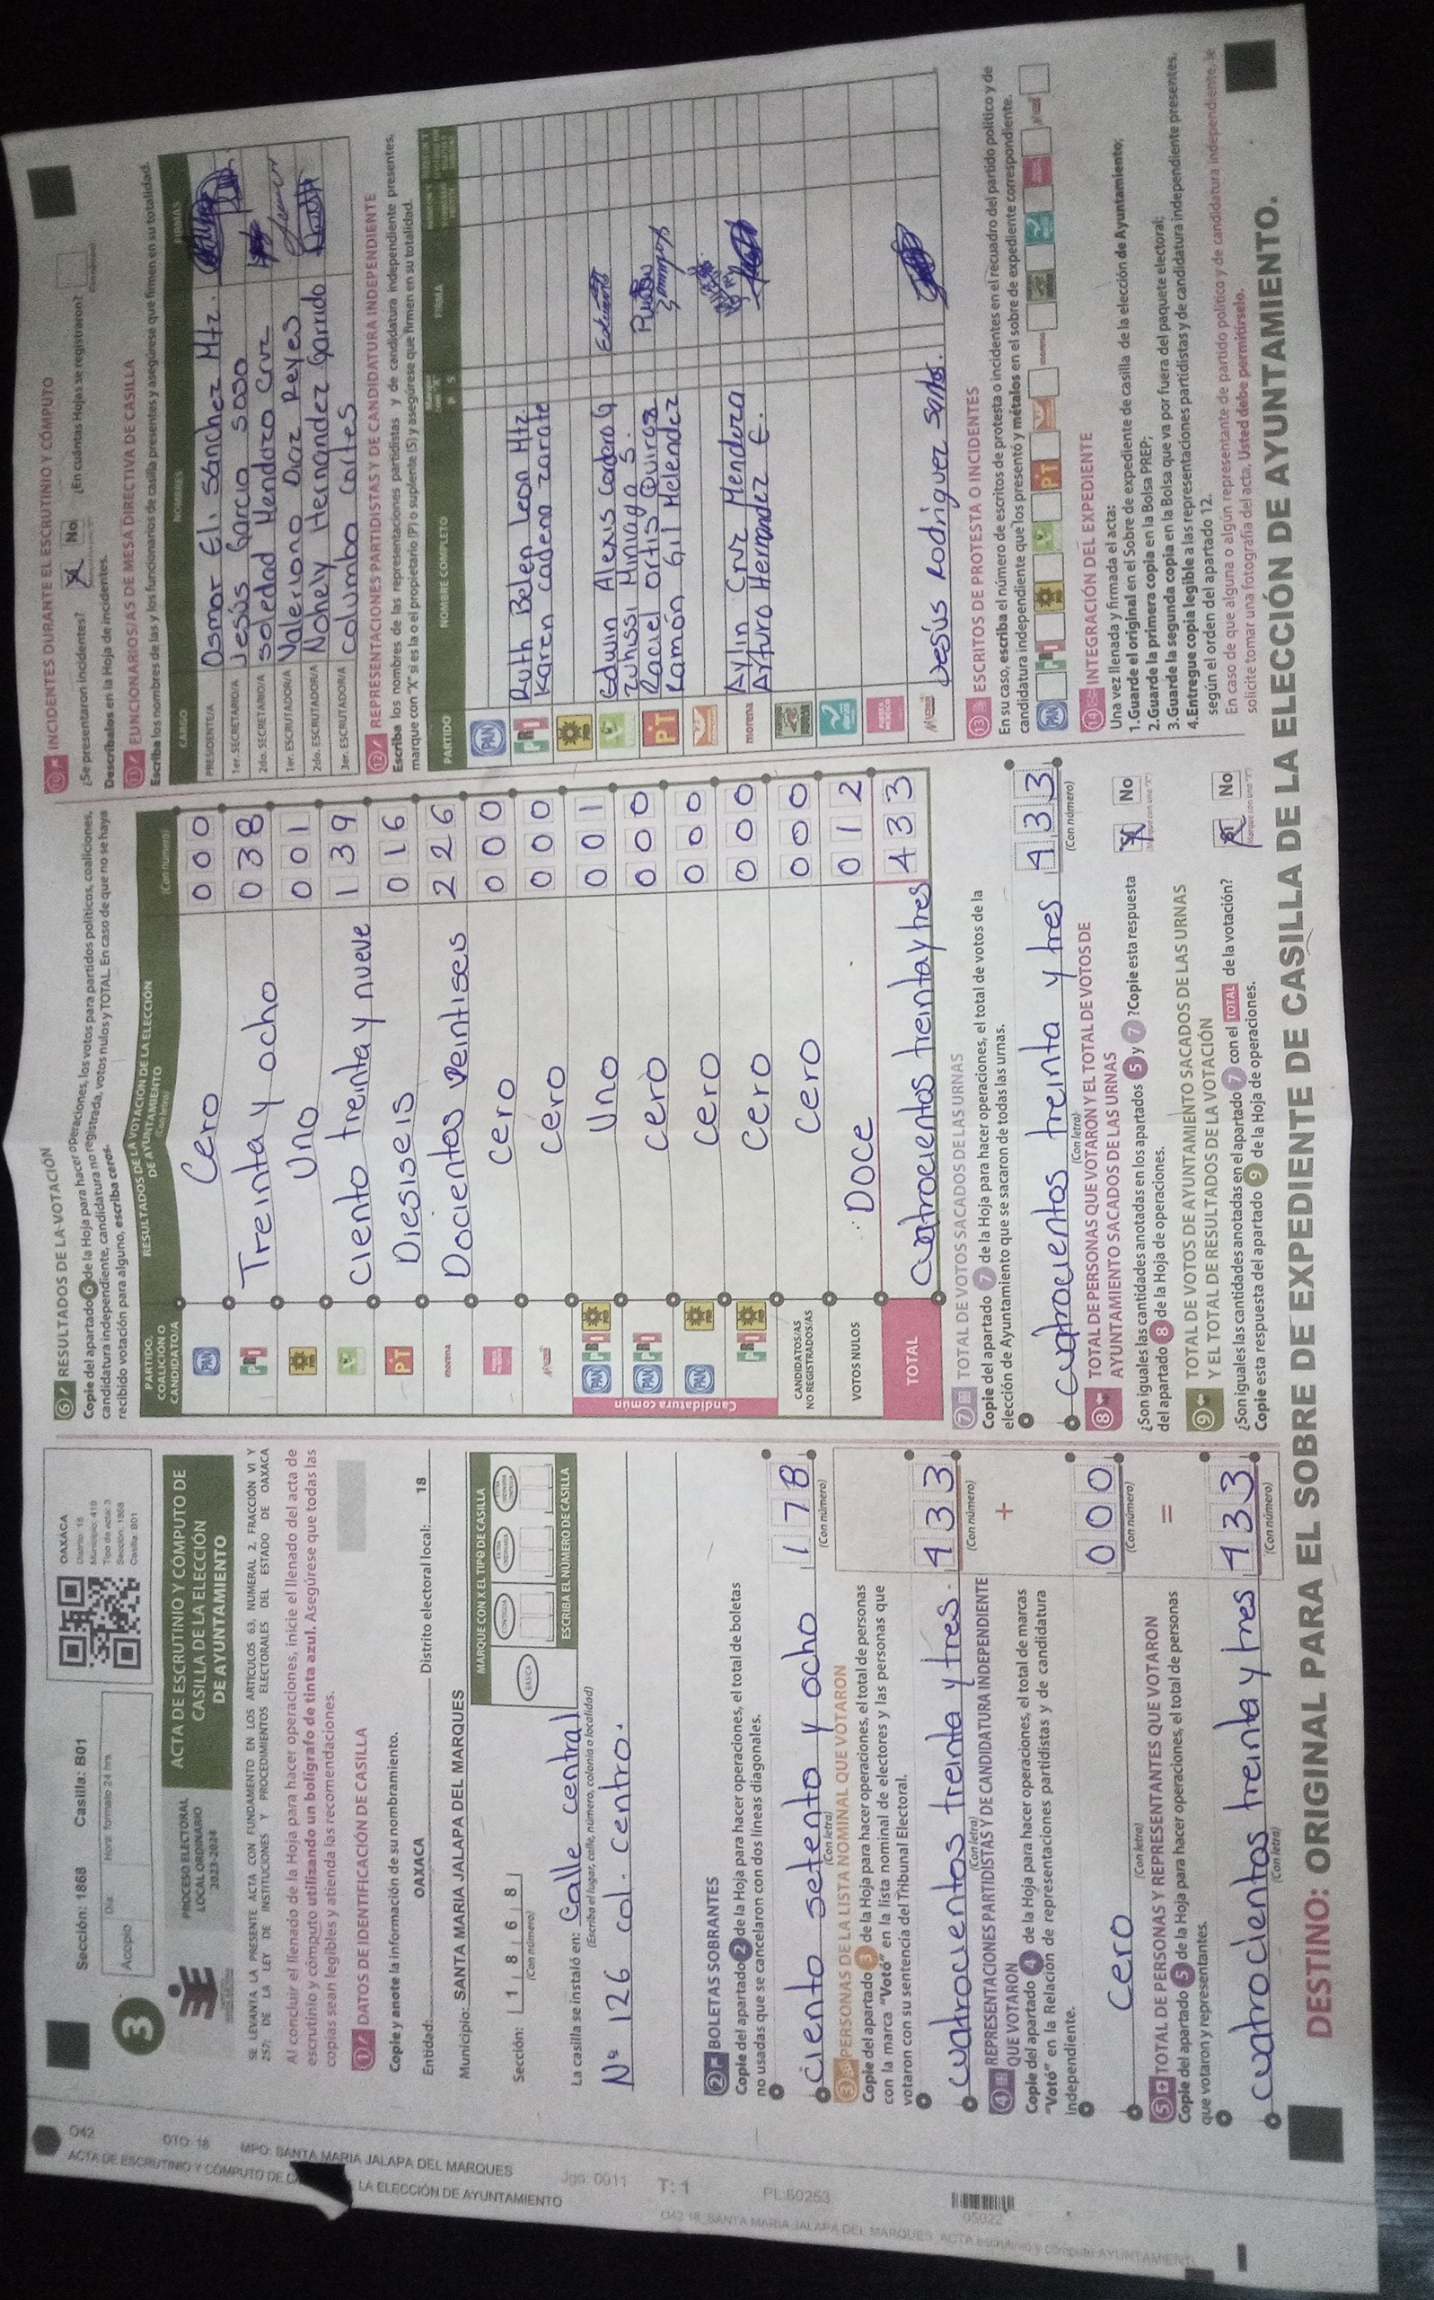 042
DTO: 18
MPO: SANTA MARIA JALAPA DEL MARQUES
LA ELECCIÓN DE AYUNTAMIENTO
T: 1
PL:50253
Sección: 1868 Casilla: B01
OAXACA
Distrito: 18
Municipio: 419
Tipo de acta: 3
Sección: 1868
Casilla: B01
Acopio
Día
Hora: formato 24 hrs
3
PROCESO ELECTORAL
LOCAL ORDINARIO
2023-2024
ACTA DE ESCRUTINIO Y CÓMPUTO DE
CASILLA DE LA ELECCIÓN
DE AYUNTAMIENTO
SE LEVANTA LA PRESENTE ACTA CON FUNDAMENTO EN LOS ARTÍCULOS 63, NUMERAL 2, FRACCIÓN VI Y
257; DE LA LEY DE INSTITUCIONES Y PROCEDIMIENTOS ELECTORALES DEL ESTADO DE OAXACA
Al concluir el llenado de la Hoja para hacer operaciones, inicie el llenado del acta de
escrutinio y cómputo utilizando un bolígrafo de tinta azul. Asegúrese que todas las
copias sean legibles y atienda las recomendaciones.
1 DATOS DE IDENTIFICACIÓN DE CASILLA
Copie y anote la información de su nombramiento.
Entidad: OAXACA Distrito electoral local: 18
Municipio: SANTA MARIA JALAPA DEL MARQUES
Sección: 1 8 6 8
(Con número)
MARQUE CON X EL TIPO DE CASILLA
BÁSICA
ESCRIBA EL NÚMERO DE CASILLA
La casilla se instaló en: Calle central
(Escriba el lugar, calle, número, colonia o localidad)
Nº 126 col. centro.
2 BOLETAS SOBRANTES
Copie del apartado 2 de la Hoja para hacer operaciones, el total de boletas
no usadas que se cancelaron con dos líneas diagonales.
ciento setento y ocho 178
(Con letra) (Con número)
3 PERSONAS DE LA LISTA NOMINAL QUE VOTARON
Copie del apartado 3 de la Hoja para hacer operaciones, el total de personas
con la marca "Votó" en la lista nominal de electores y las personas que
votaron con su sentencia del Tribunal Electoral.
cuatrocuentos treinta y tres. 433
(Con letra) (Con número)
4 REPRESENTACIONES PARTIDISTAS Y DE CANDIDATURA INDEPENDIENTE
QUE VOTARON
+
Copie del apartado 4 de la Hoja para hacer operaciones, el total de marcas
"Votó" en la Relación de representaciones partidistas y de candidatura
independiente.
cero 000
(Con letra) (Con número)
5 TOTAL DE PERSONAS Y REPRESENTANTES QUE VOTARON
=
Copie del apartado 5 de la Hoja para hacer operaciones, el total de personas
que votaron y representantes.
cuatrocientos treinta y tres 433
(Con letra) (Con número)
6 RESULTADOS DE LA VOTACIÓN
Copie del apartado 6 de la Hoja para hacer operaciones, los votos para partidos políticos, coaliciones,
candidatura independiente, candidatura no registrada, votos nulos y TOTAL. En caso de que no se haya
recibido votación para alguno, escriba ceros.
PARTIDO,
COALICIÓN O
CANDIDATO/A
RESULTADOS DE LA VOTACIÓN DE LA ELECCIÓN
DE AYUNTAMIENTO
(Con letra) (Con número)
PAN Cero 000
PRI Treinta y ocho 038
PRD Uno 001
ciento treinta y nueve 139
PT Diesiseis 016
morena Docientas veintiseis 226
cero 000
cero 000
Candidatura común
PAN PRI PRD Uno 001
PAN PRI cero 000
PAN PRD cero 000
PRI PRD cero 000
CANDIDATOS/AS
NO REGISTRADOS/AS cero 000
VOTOS NULOS Doce 012
TOTAL cuatrocientos treinta y tres 433
7 TOTAL DE VOTOS SACADOS DE LAS URNAS
Copie del apartado 7 de la Hoja para hacer operaciones, el total de votos de la
elección de Ayuntamiento que se sacaron de todas las urnas.
cuatrocientos treinta y tres 433
(Con letra) (Con número)
8 TOTAL DE PERSONAS QUE VOTARON Y EL TOTAL DE VOTOS DE
AYUNTAMIENTO SACADOS DE LAS URNAS
¿Son iguales las cantidades anotadas en los apartados 5 y 7 ? Copie esta respuesta
del apartado 8 de la Hoja de operaciones.
X No
9 TOTAL DE VOTOS DE AYUNTAMIENTO SACADOS DE LAS URNAS
Y EL TOTAL DE RESULTADOS DE LA VOTACIÓN
¿Son iguales las cantidades anotadas en el apartado 7 con el TOTAL de la votación?
Copie esta respuesta del apartado 9 de la Hoja de operaciones.
X No
10 INCIDENTES DURANTE EL ESCRUTINIO Y CÓMPUTO
¿Se presentaron incidentes? X No ¿En cuántas Hojas se registraron?
Descríbalos en la Hoja de incidentes.
11 FUNCIONARIOS/AS DE MESA DIRECTIVA DE CASILLA
Escriba los nombres de las y los funcionarios de casilla presentes y asegúrese que firmen en su totalidad.
CARGO NOMBRES FIRMAS
PRESIDENTE/A Osmar Eli Sánchez Mtz.
1er. SECRETARIO/A Jesús Garcia soso
2do. SECRETARIO/A soledad Mendozo Cruz
1er. ESCRUTADOR/A Valeriano Diaz Reyes
2do. ESCRUTADOR/A Nohely Hernandez Garrido
3er. ESCRUTADOR/A columbo cortes
12 REPRESENTACIONES PARTIDISTAS Y DE CANDIDATURA INDEPENDIENTE
Escriba los nombres de las representaciones partidistas y de candidatura independiente presentes,
marque con "X" si es la o el propietario (P) o suplente (S) y asegúrese que firmen en su totalidad.
PARTIDO NOMBRE COMPLETO P S FIRMA
PAN
PRI Ruth Belen Leon Mtz
Karen cadena zarate
PRD
Edwin Alexis Cordero G
Zuhissi Miniaga S.
PT Raciel Ortis Quiroz
Ramón Gil Melendez
morena Aylin Cruz Mendoza
Arturo Hernandez E.
Jesús Rodriguez Santos.
13 ESCRITOS DE PROTESTA O INCIDENTES
En su caso, escriba el número de escritos de protesta o incidentes en el recuadro del partido político y de
candidatura independiente que los presentó y métalos en el sobre de expediente correspondiente.
PAN PRI PRD PT morena
14 INTEGRACIÓN DEL EXPEDIENTE
Una vez llenada y firmada el acta:
1.Guarde el original en el Sobre de expediente de casilla de la elección de Ayuntamiento;
2.Guarde la primera copia en la Bolsa PREP;
3.Guarde la segunda copia en la Bolsa que va por fuera del paquete electoral;
4.Entregue copia legible a las representaciones partidistas y de candidatura independiente presentes,
según el orden del apartado 12.
En caso de que alguna o algún representante de partido político y de candidatura independiente, le
solicite tomar una fotografía del acta, Usted debe permitírselo.
DESTINO: ORIGINAL PARA EL SOBRE DE EXPEDIENTE DE CASILLA DE LA ELECCIÓN DE AYUNTAMIENTO.